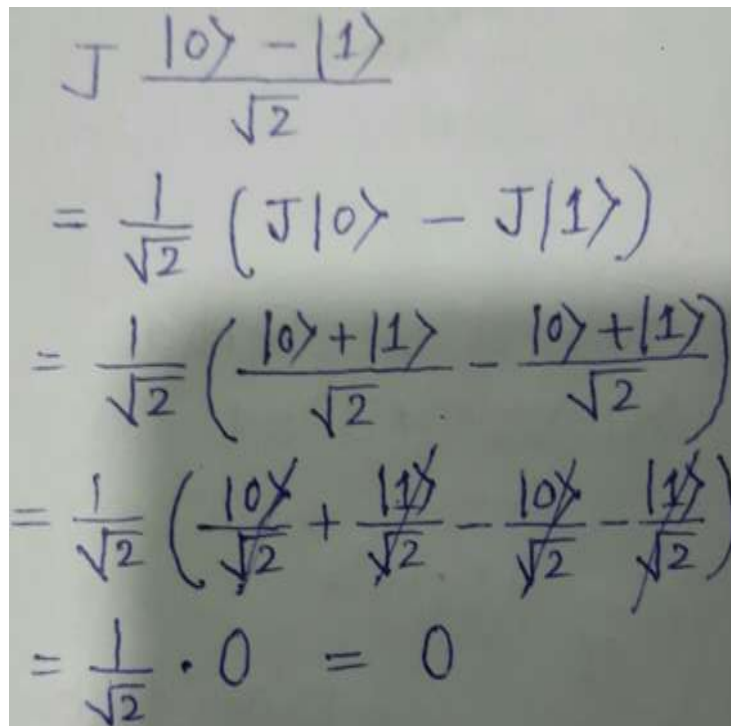 J (|0⟩ - |1⟩)/√2
= 1/√2 (J|0⟩ - J|1⟩)
= 1/√2 ((|0⟩+|1⟩)/√2 - (|0⟩+|1⟩)/√2)
= 1/√2 (|0⟩/√2 + |1⟩/√2 - |0⟩/√2 - |1⟩/√2)
= 1/√2 · 0 = 0